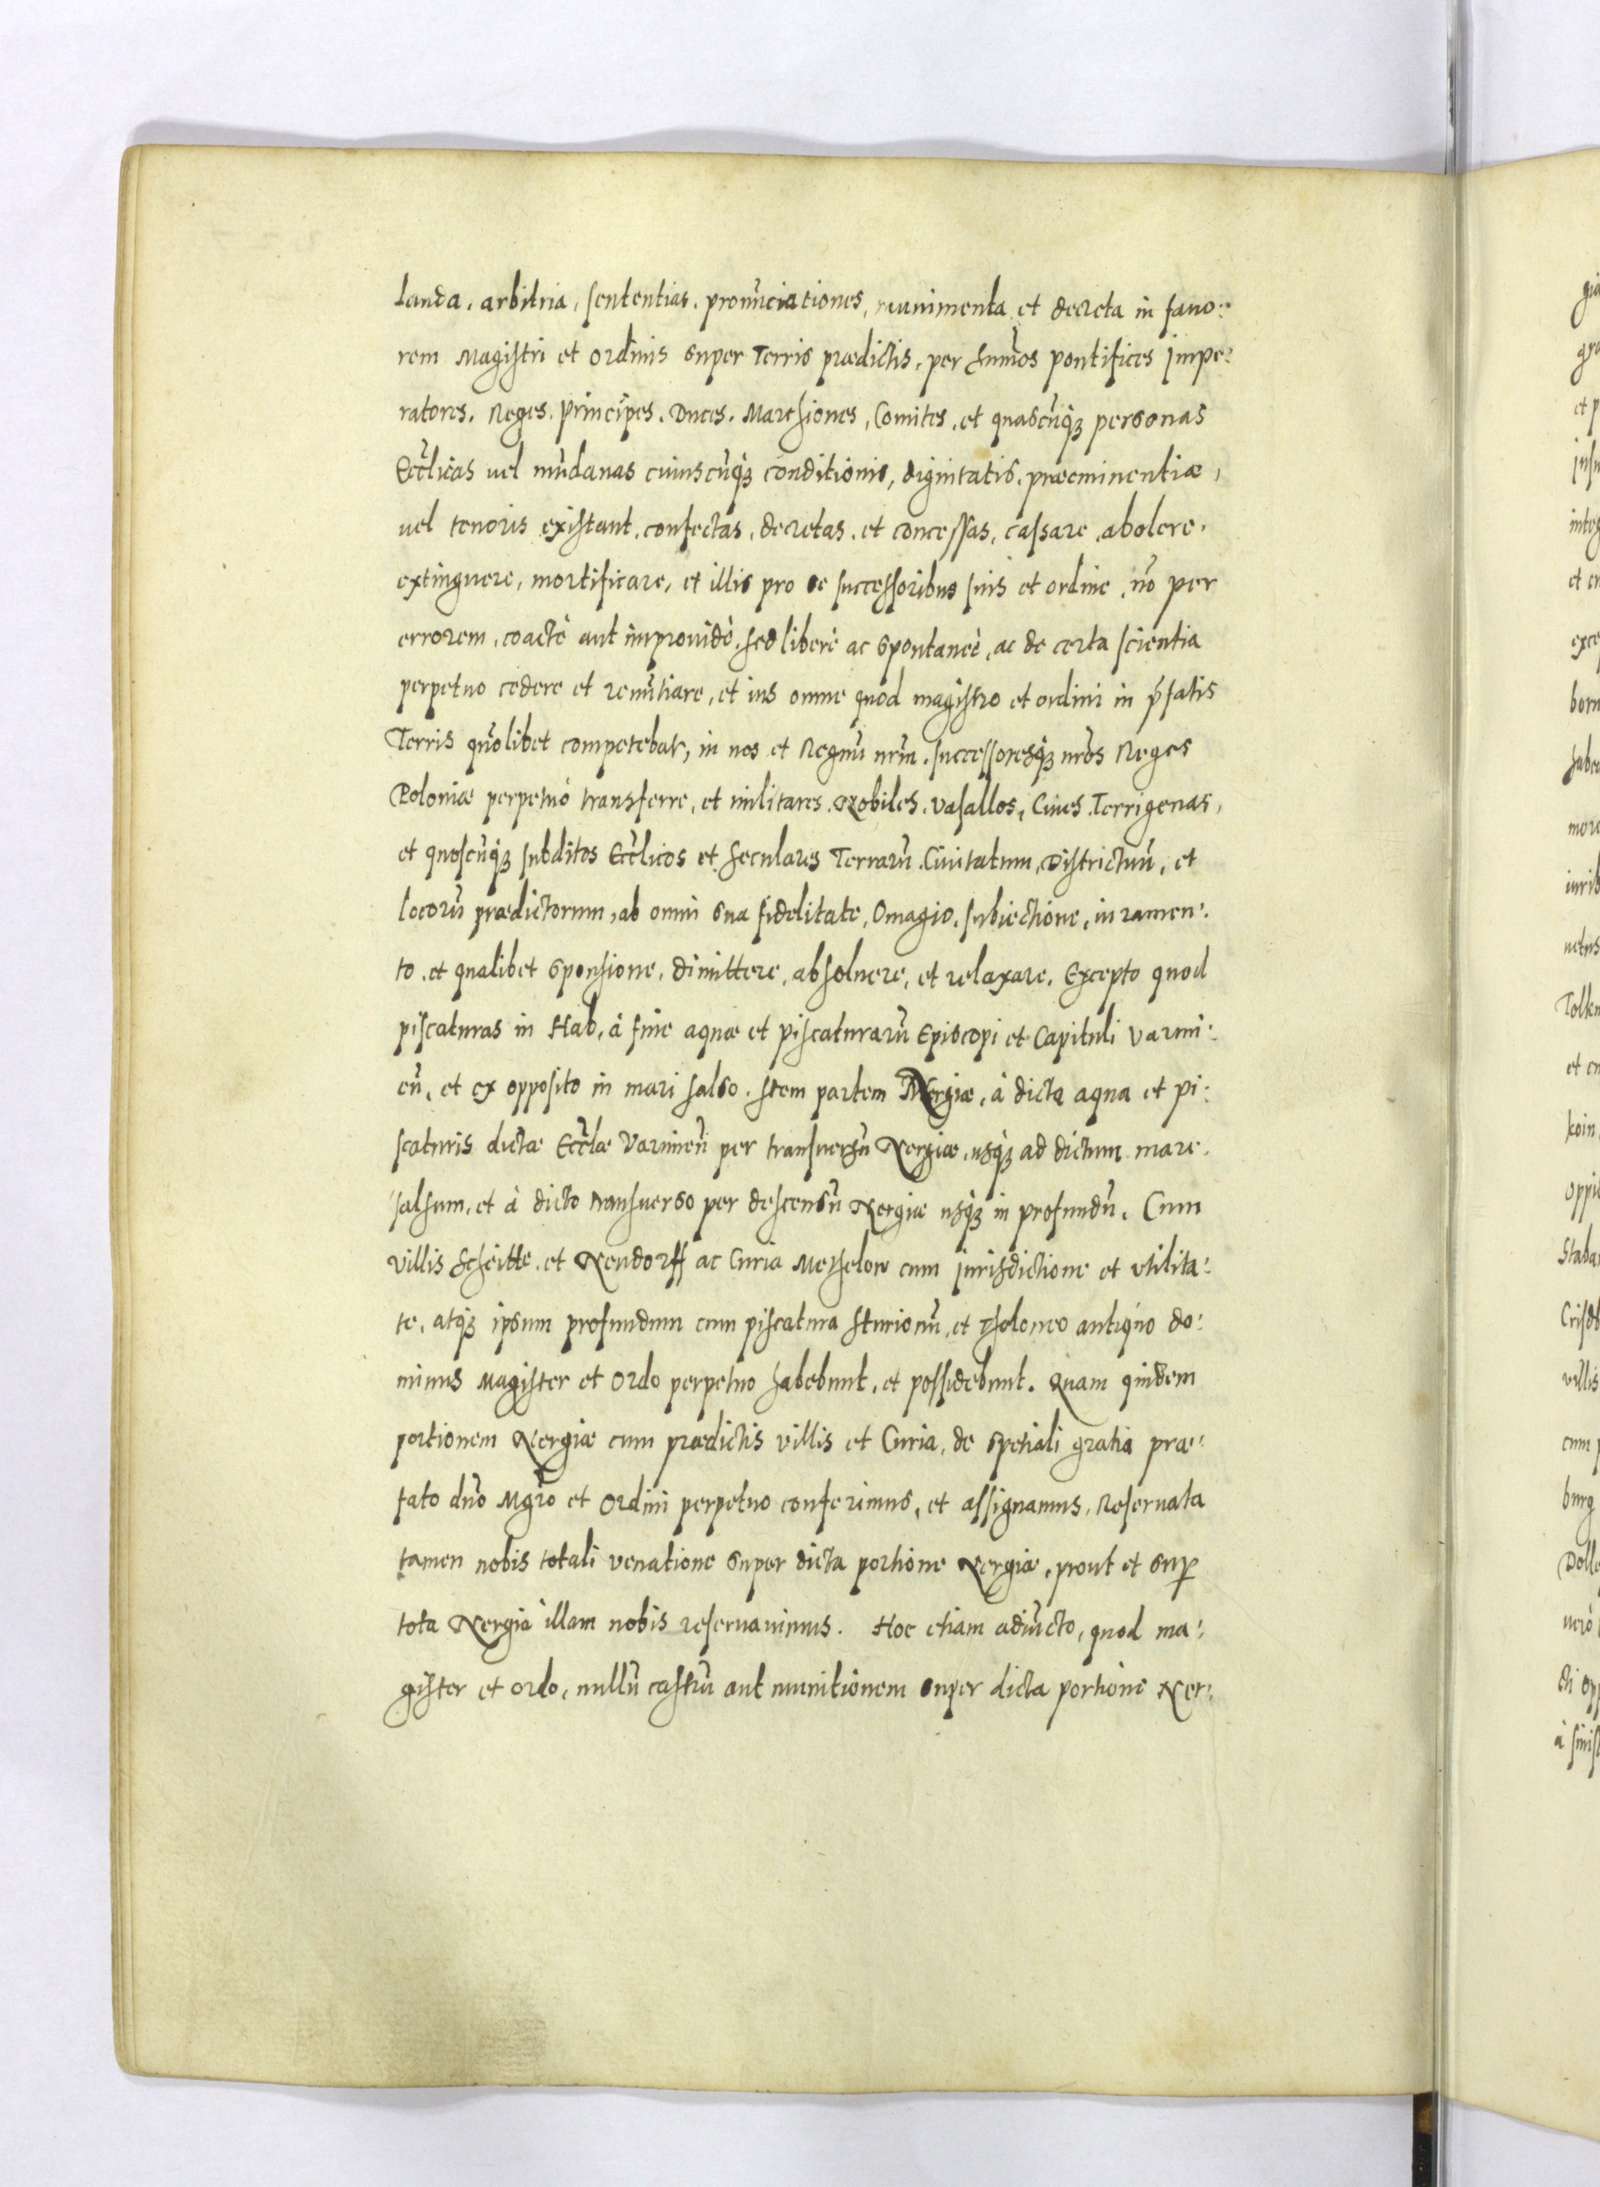 lauda, arbitria, sententias, pronūciationes, munimenta et decreta in fauo:
rem Magistri et ordinis super Terris prædictis, per summos pontifices Impe:
ratores, Reges, principes, Duces, Marchiones, Comites, et quascūq3 personas
Eccl̄icas uel mūdanas cuiuscūq3 conditionis, dignitatis, præeminentiæ,
uel tenoris existant, confectas, decretas, et concessas, cassare, abolere,
extinguere, mortificare, et illis pro se successoribus suis et ordine, nō per
errorem, coactè aut improuidè, sed liberè ac spontaneè, ac de certa scientia
perpetuo cedere et renūtiare, et ius omne quod magistro et ordini in p̄fatis
Terris quōlibet competebat, in nos et Regnū nr̄m, successoresq3 nr̄os Reges
Poloniæ perpetuò transferre, et militares, Nobiles, vasallos, Ciues, Terrigenas,
et quoscūq3 subditos Eccl̄icos et seculares Terrarū, Ciuitatum, Districtuū, et
locorū prædictorum, ab omni sua fidelitate, Omagio, subiectione, iuramen:
to, et qualibet sponsione, dimittere, absoluere, et relaxare. Excepto quod
piscaturas in Hab, à fine aquæ et piscaturarū Episcopi et Capituli Varmi:
eñ, et ex opposito in mari salso. Item partem Nergiæ, à dicta aqua et pi:
scaturis dictæ Eccl̄æ Varmieñ per transuersū Nergiæ, usq3 ad dictum mare
salsum, et à dicto transuerso per descensū Nergiæ usq3 in profundū. Cum
villis Scheitte, et Neudorff ac Curia Meyselow cum jurisdictione et vtilita:
te, atq3 ipsum profundum cum piscatura sturionū, et Tholoneo antiquo do:
minus Magister et Ordo perpetuo habebunt, et possidebunt. Quam quidem
portionem Nergiæ cum prædictis villis et Curia, de spetiali gratia præ:
fato dn̄o Mgr̄o et Ordini perpetuo conferimus, et assignamus, Reseruata
tamen nobis totali venatione super dicta portione Nergiæ, prout et sup̱
tota Nergia illam nobis reseruauimus. Hoc etiam adiūcto, quod ma:
gister et ordo, nullū castrū aut munitionem super dicta portione Ner: